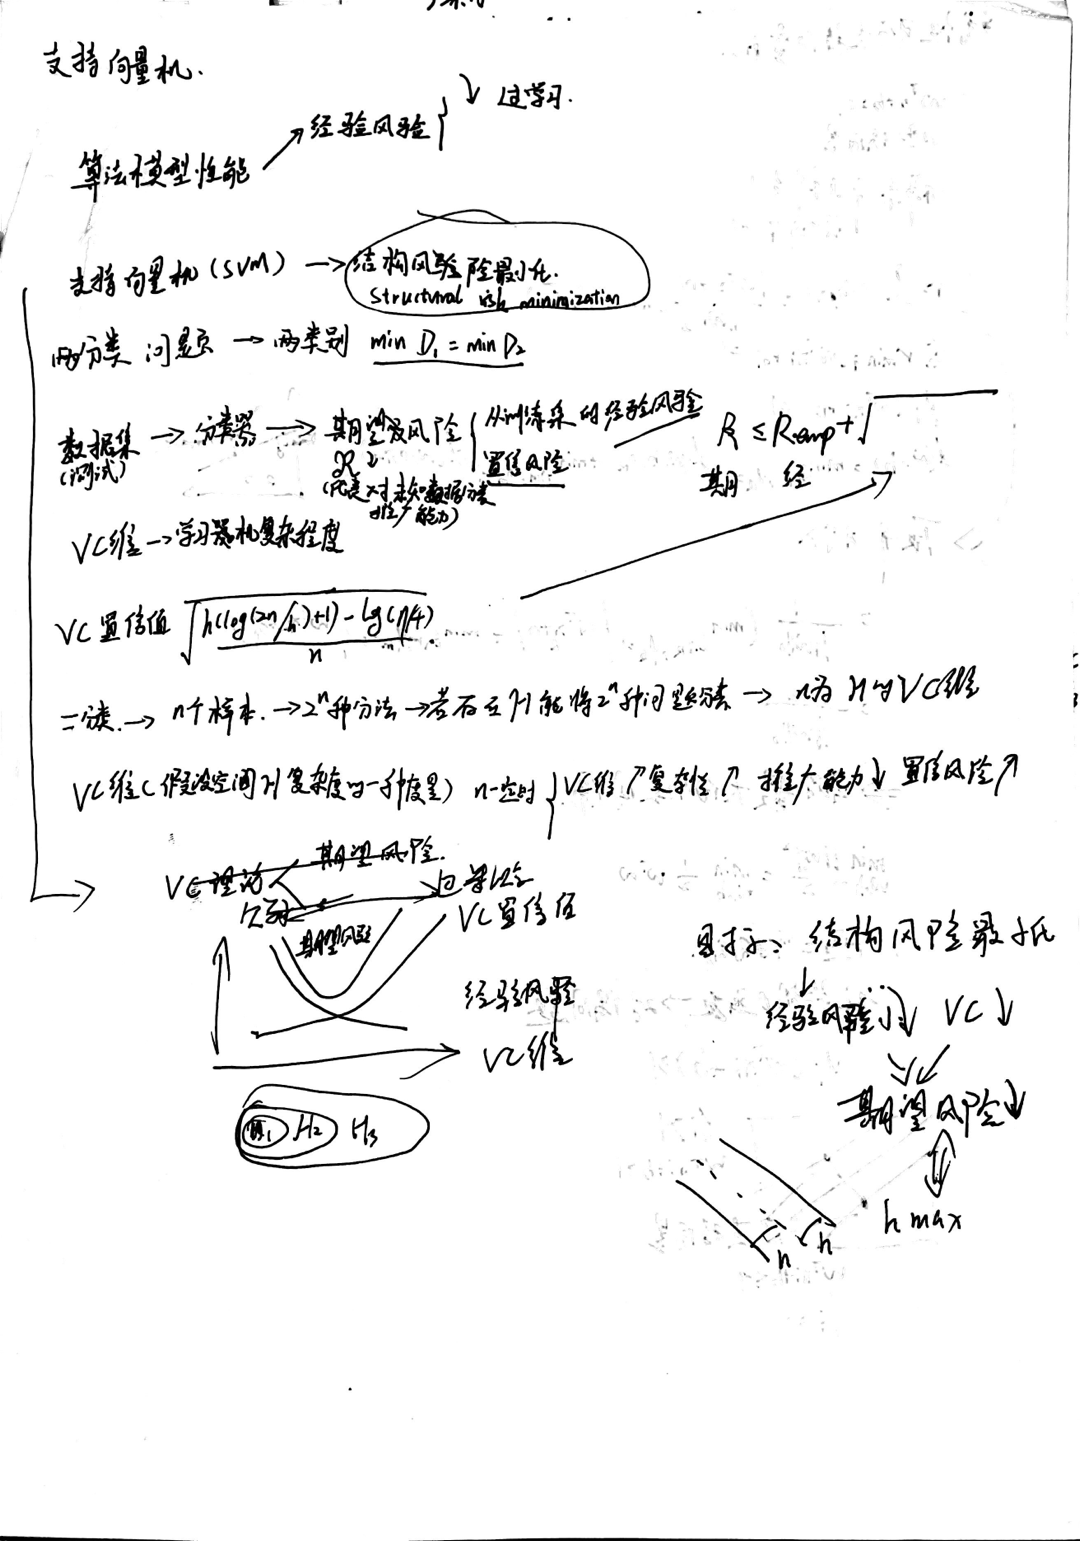 支持向量机.
算法模型性能 → 经验风险 { ↓ 过学习.
支持向量机 (SVM) → 结构风险 险最小化.
structural risk minimization
两分类 问题 → 两类别 min D₁ = min D₂
数据集 → 分类器 → 期望风险 { 从训练集的经验风险
(测试) R ↓ 置信风险
R ≤ Remp + √
期 经
(代表对未知数据分类
推广能力)
VC维 → 学习器机复杂程度
VC 置信值 √ h(log(2n/h)+1) - log(η/4) / n
二分类. → n个样本. → 2ⁿ种分法 → 若存在H能将2ⁿ种问题分类 → n为 H的VC维
VC维 (假设空间H复杂度的一种度量) n一定时 { VC维 ↗ 复杂性 ↗ 推广能力 ↓ 置信风险 ↗
VC 理论 期望风险.
欠习 → 过学习
期望风险
VC 置信值
经验风险
VC维
H₁ H₂ H₃
目标: 结构风险最小化
↓
经验风险 ↓ VC ↓
期望风险 ↓
h max
h h